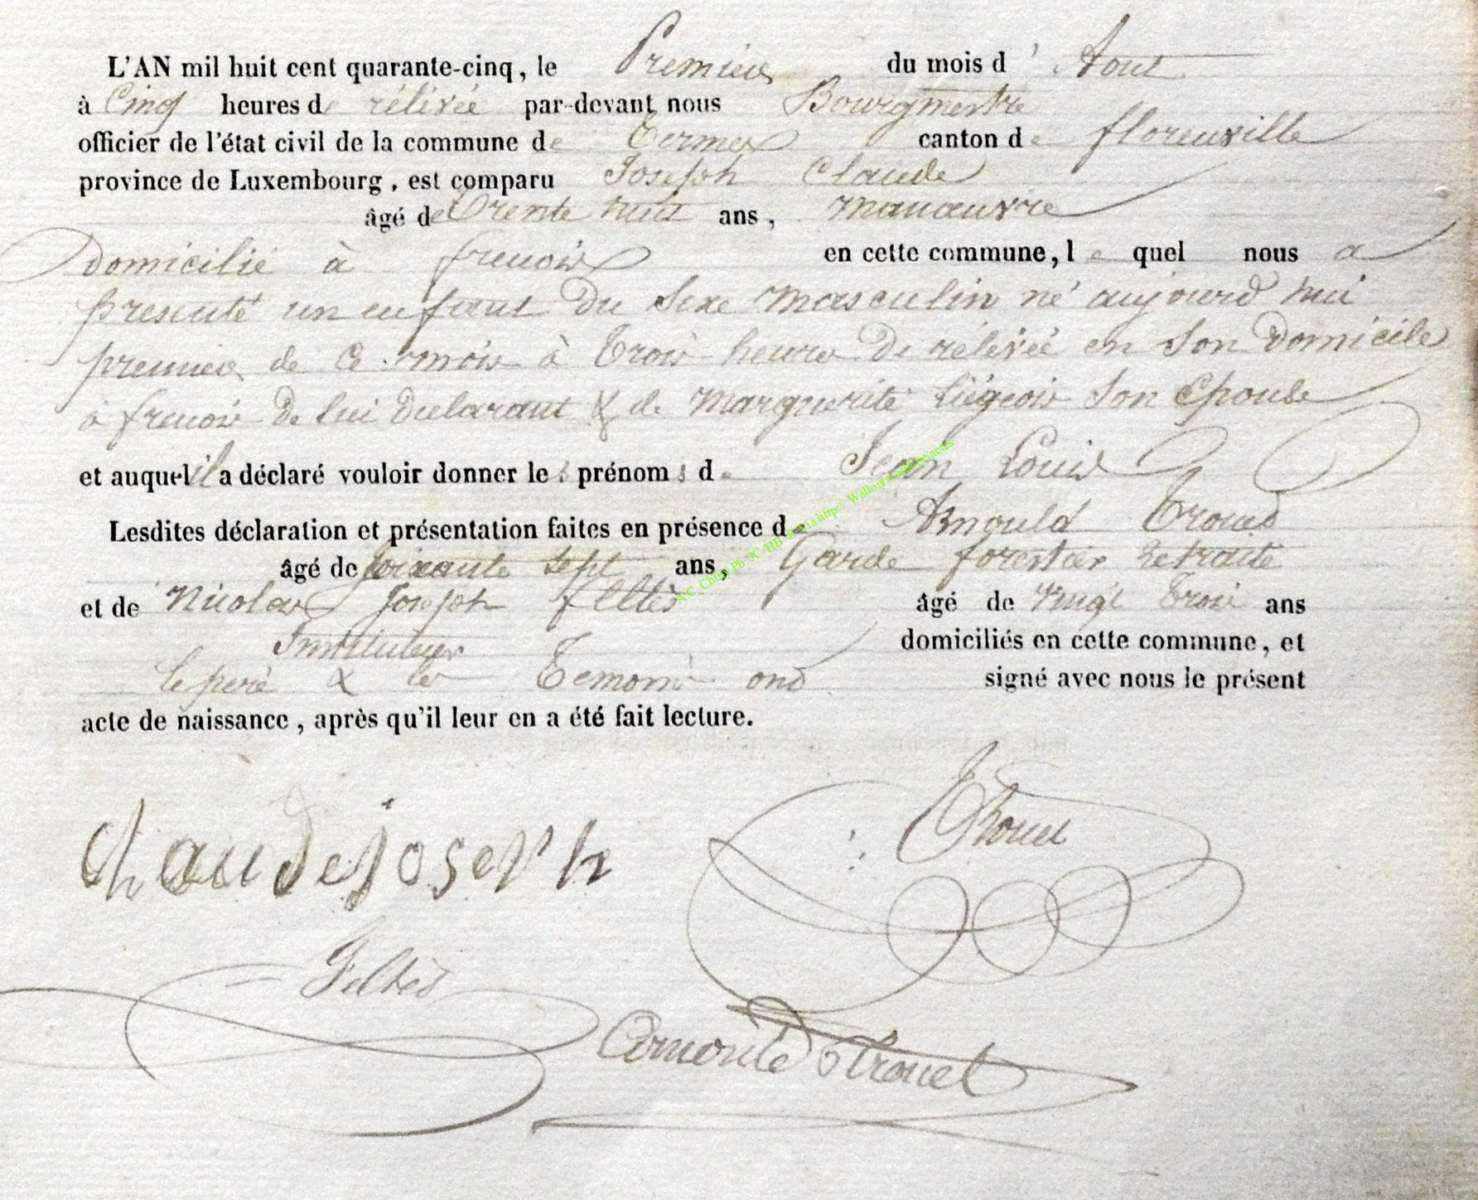 L'AN mil huit cent quarante-cinq, le Premier du mois d' Aout
à Cinq heures de rélévée par-devant nous Bourgmestre
officier de l'état civil de la commune de Termes canton de florenville
province de Luxembourg, est comparu Joseph Claude
âgé de Trente huit ans, manœuvre
domicilié à frenois en cette commune, le quel nous a
présenté un enfant du sexe masculin né aujourd'hui
premier de ce mois à Trois heures de rélévée en son domicile
à frenois de lui déclarant & de Marguerite Liégeois son épouse
et auquel il a déclaré vouloir donner les prénoms de Jean Louis
Lesdites déclaration et présentation faites en présence de Arnould Trouet
âgé de soixante sept ans, Garde forestier retraité
et de Nicolas Joseph feltès âgé de vingt trois ans
Instituteur domiciliés en cette commune, et
le père & les Temoins ond signé avec nous le présent
acte de naissance, après qu'il leur en a été fait lecture.
Claude joseph
Trouet
Feltès
Arnould Trouet